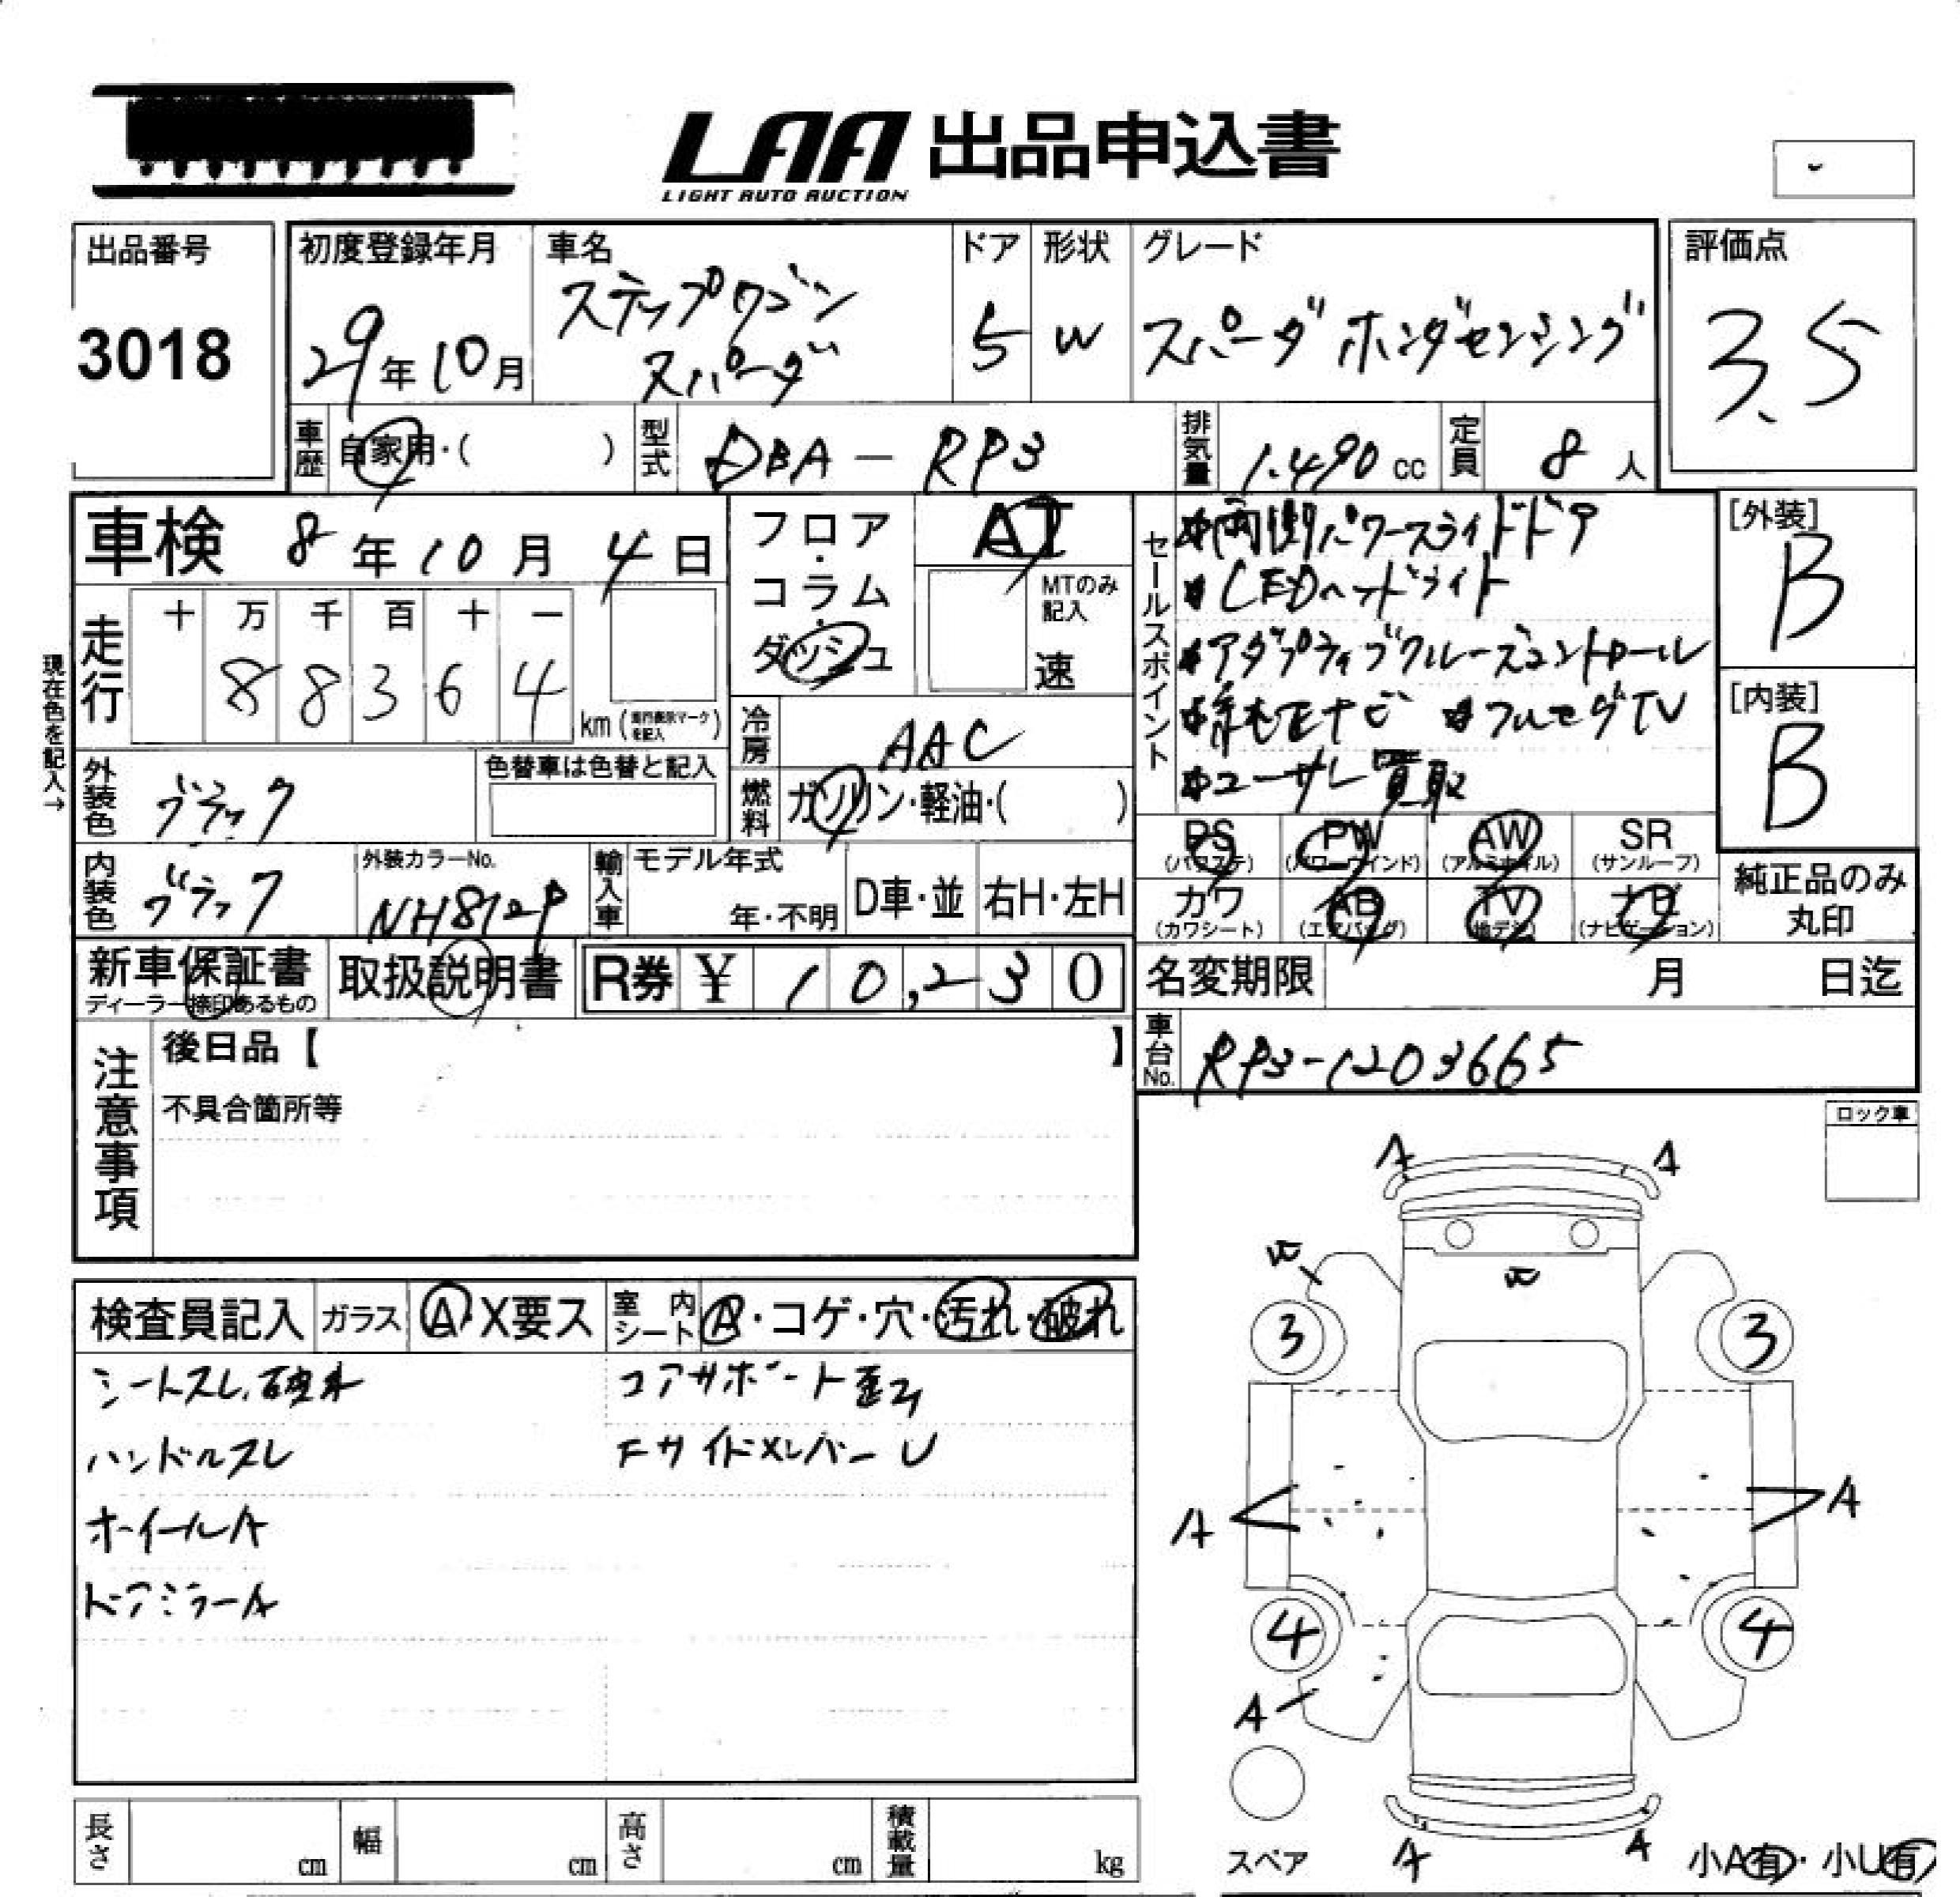 LAA 出品申込書
LIGHT AUTO AUCTION
出品番号
3018
初度登録年月
29年10月
車名
ステップワゴン
スパーダ
ドア
5
形状
W
グレード
スパーダ ホンダセンシング
評価点
3.5
車歴
自家用・( )
型式
DBA-RP3
排気量
1.490cc
定員
8人
車検 8年10月4日
フロア・コラム・ダッシュ
AT
MTのみ記入
速
セールスポイント
両側パワースライドドア
LEDヘッドライト
アダプティブクルーズコントロール
純正ナビ フルセグTV
ユーザー買取
[外装]
B
[内装]
B
現在色を記入→
走行
十 万 千 百 十 一
8 8 3 6 4
km (走行表示マークを記入)
冷房
AAC
外装色
ブラック
色替車は色替と記入
燃料
ガソリン・軽油・( )
PS (パワステ)
PW (パワーウインド)
AW (アルミホイル)
SR (サンルーフ)
内装色
ブラック
外装カラーNo.
NH812P
輸入車
モデル年式
年・不明
D車・並
右H・左H
カワ (カワシート)
AB (エアバッグ)
TV (地デジ)
ナビ (ナビゲーション)
純正品のみ丸印
新車保証書
ディーラー捺印あるもの
取扱説明書
R券 ¥ 10,230
名変期限 月 日迄
注意事項
後日品【 】
不具合箇所等
車台No.
RP3-1203665
ロック車
検査員記入
ガラス A・X要ス
室内シート A・コゲ・穴・汚れ・破れ
シートスレ、破れ
コアサポート歪み
ハンドルスレ
FサイドメンバーU
ホイールA
ドアミラーA
A A
3 3
A A
4 4
A
スペア
A A
小A有・小U有
長さ cm
幅 cm
高さ cm
積載量 kg